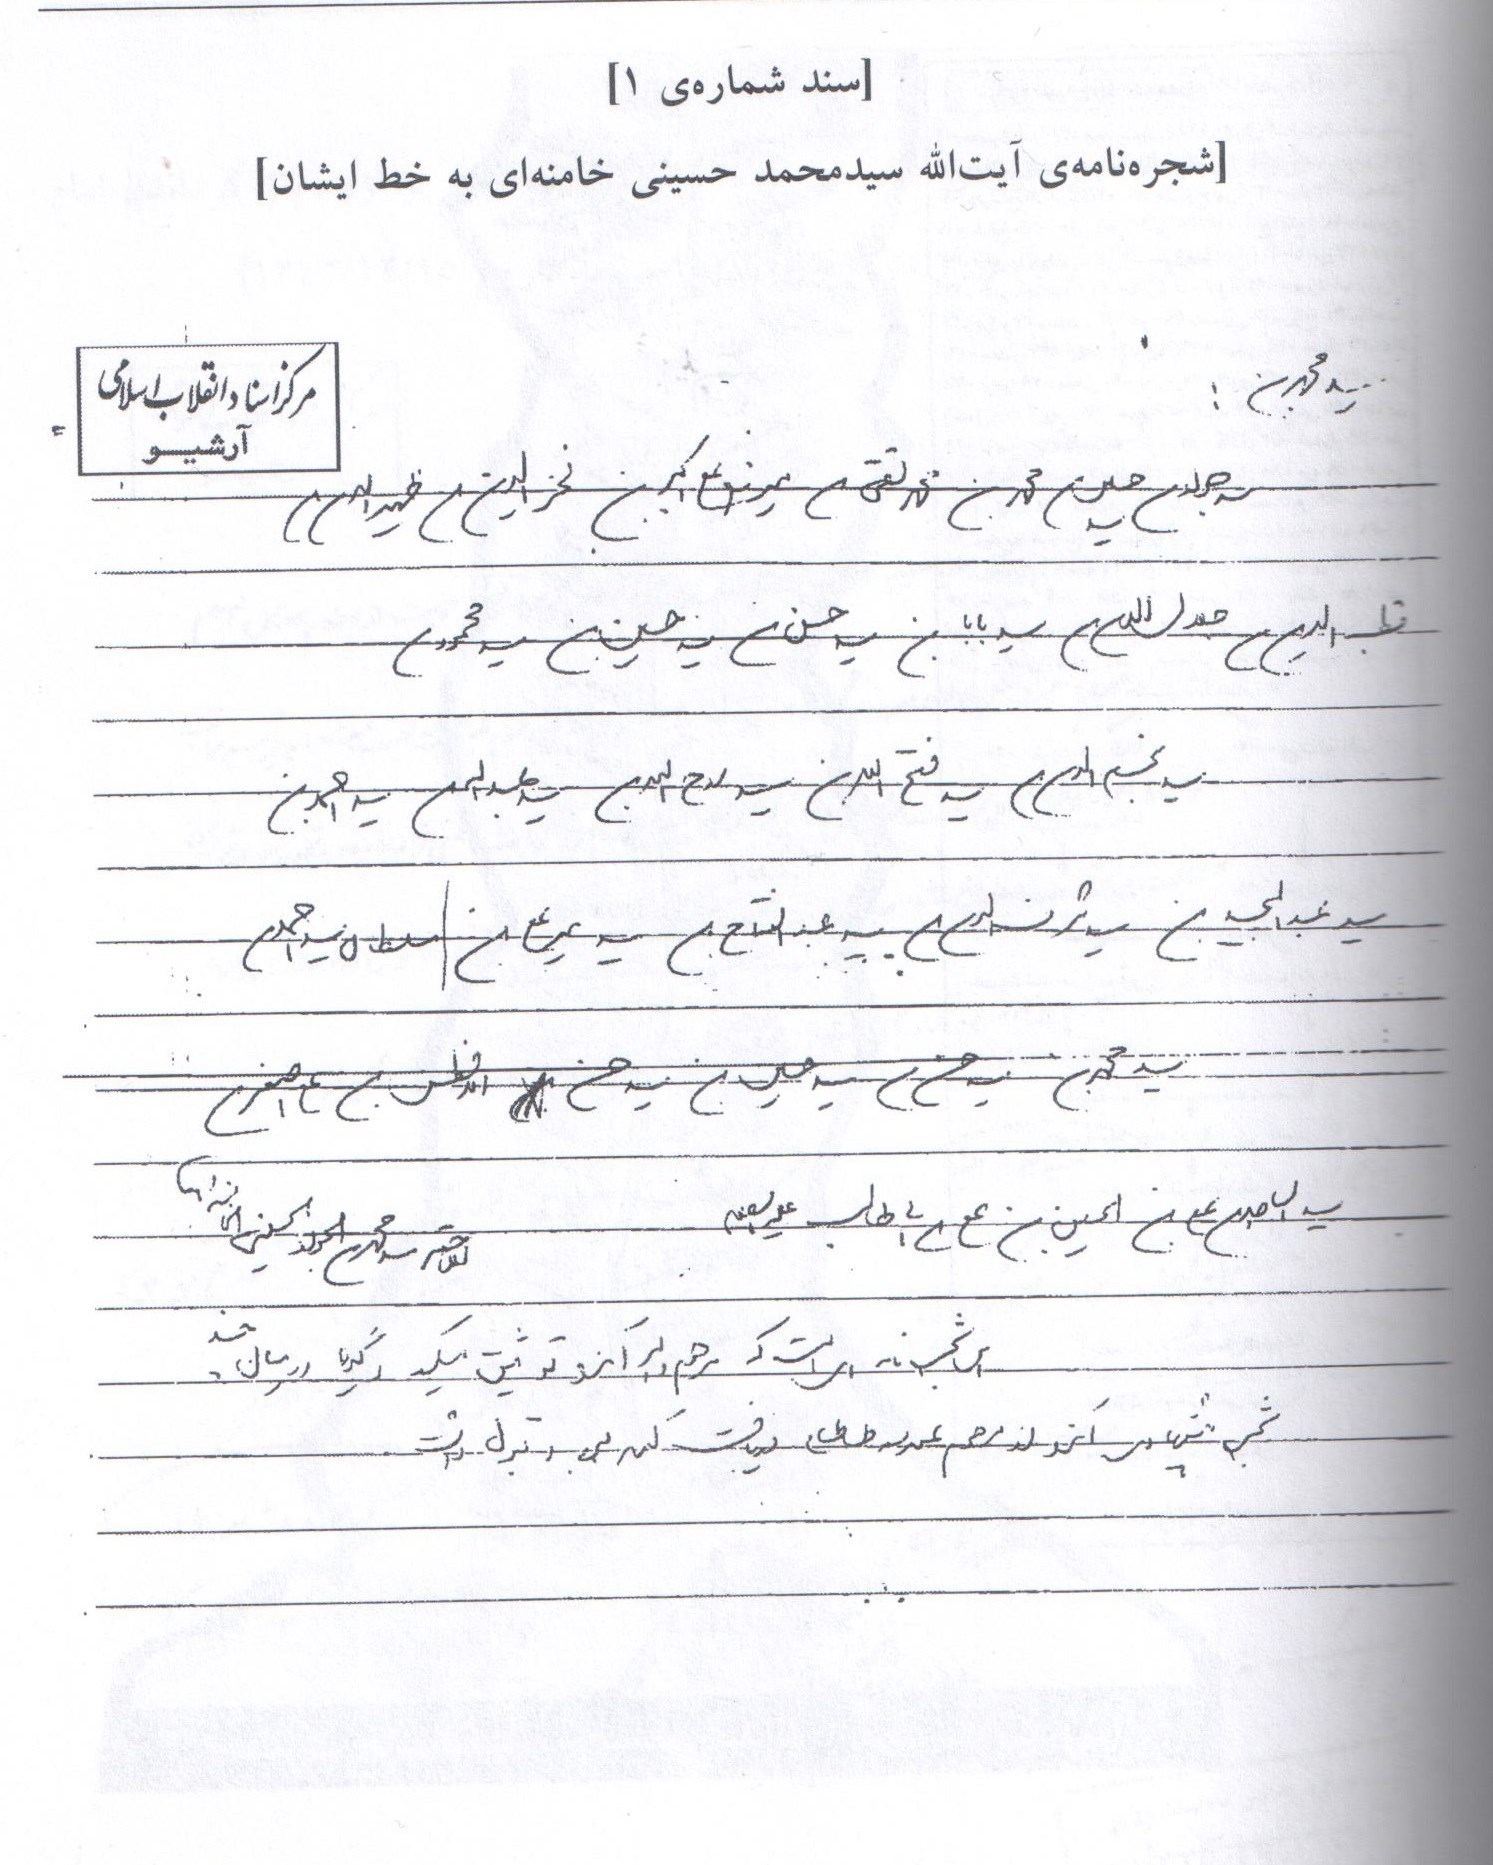 [سند شماره‌ی ۱]
[شجره‌نامه‌ی آیت‌الله سیدمحمد حسینی خامنه‌ای به خط ایشان]
مرکز اسناد انقلاب اسلامی
آرشیو
سید محمد بن :
سید جواد بن سید حسین بن محمد بن محمد تقی بن میرزا علی اکبر بن فخرالدین بن ظهیرالدین بن
قطب الدین بن جلال الدین بن سید بابا بن سید حسن بن سید حسین بن سید محمود بن
سید نجم الدین بن سید فتح الله بن سید روح الله بن سید عبدالله بن سید احمد بن
سید عبدالمجید بن سید شرف الدین بن سید عبدالفتاح بن سید میر علی بن سلطان سید احمد بن
سید محمد بن سید حسن بن سید حسین بن سید حسن الافطس بن علی اصغر بن
سید الساجدین علی بن الحسین بن علی بن ابی طالب علیه السلام
سید محمد بن الجواد الحسینی
این شجره نامه ای است که مرحوم والد آنرا توثیق میکرد و گویا در سال
شجره آنرا از مرحوم دریافت کرده بود و قبول داشت